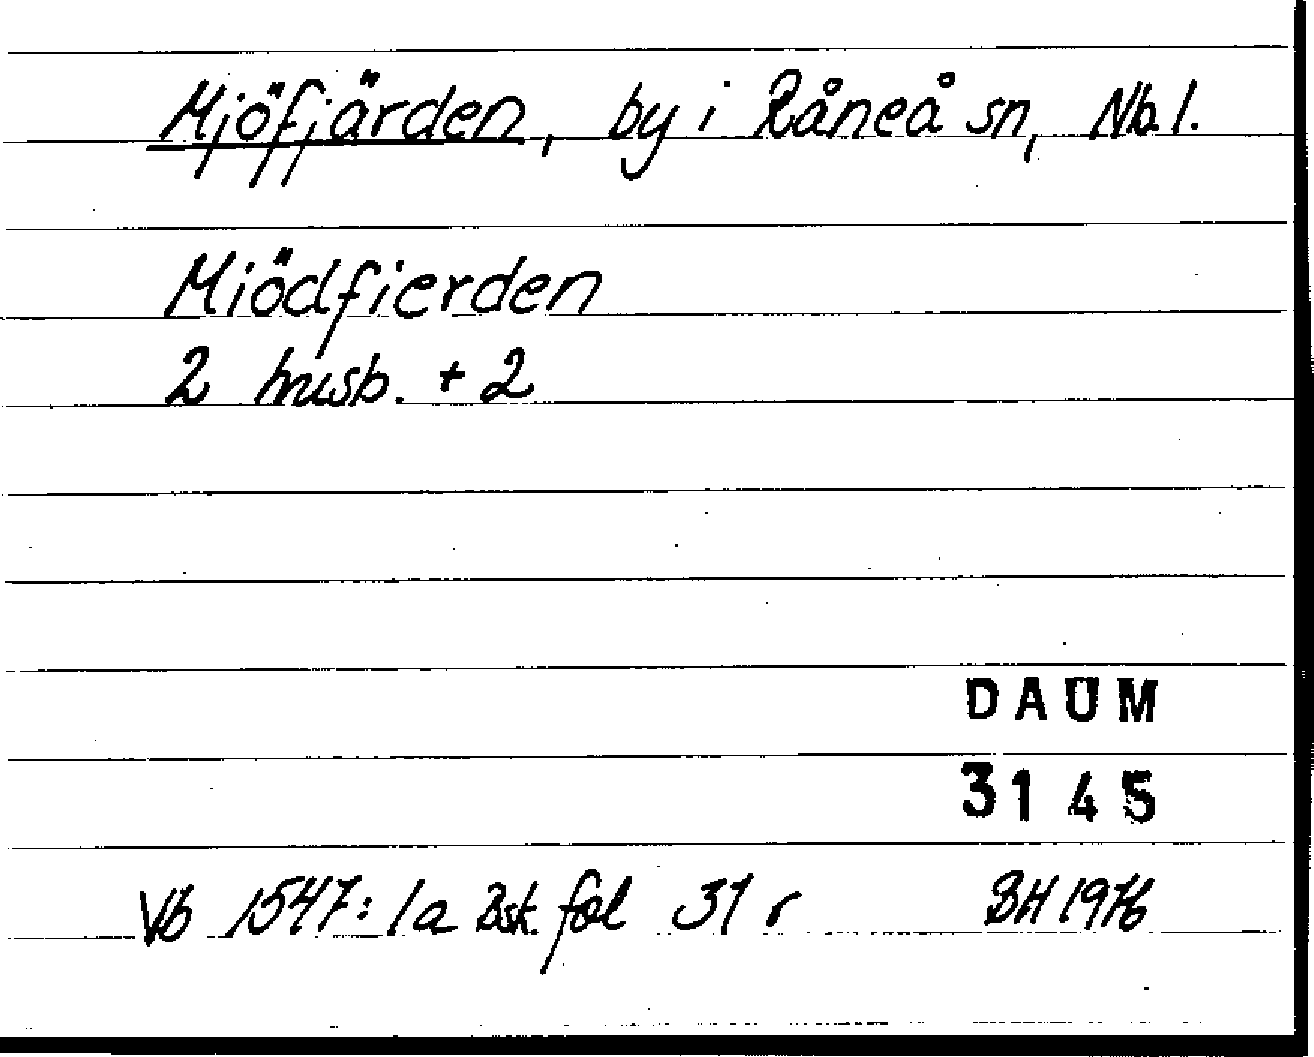 Mjöfjärden, by i Råneå sn, Nb.l.
Miödfierden
2 husb. + 2
DAUM
3145
Vb 1547: 1a Bsk. fol 31 r BH 1976